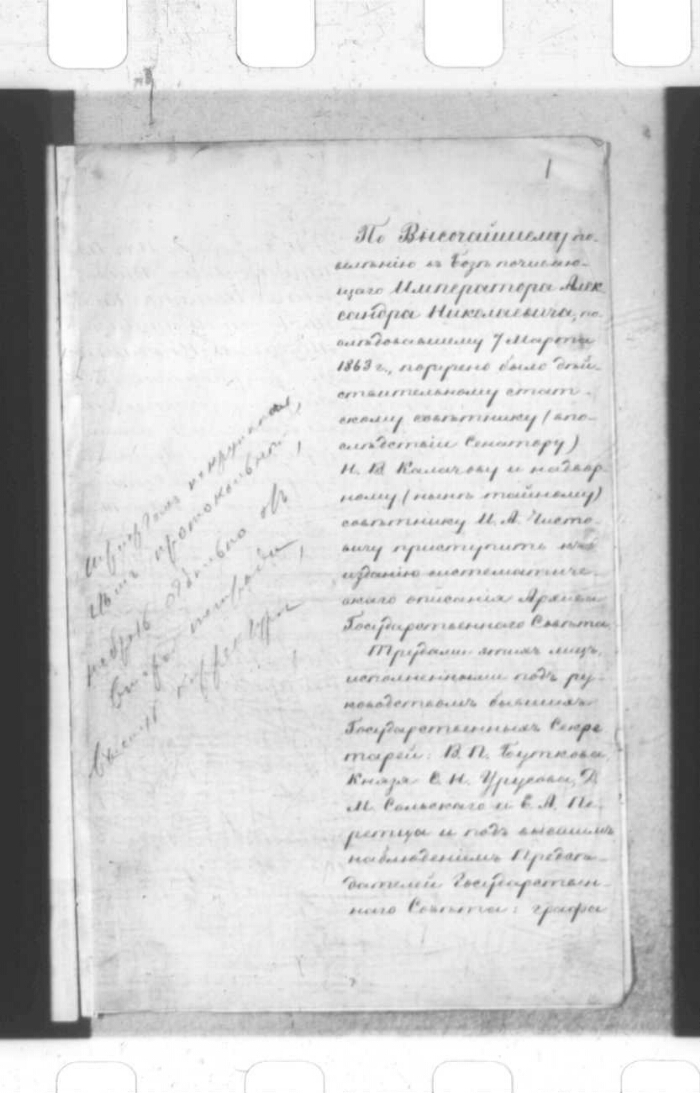 1
По Высочайшему по-
велѣнію въ Бозѣ почиваю-
щаго Императора Алек-
сандра Николаевича, по-
слѣдовавшему 7 Марта
1863 г., поручено было дѣй-
ствительному стат-
скому совѣтнику (впо-
слѣдствіи Сенатору)
Н. В. Калачову и надвор-
ному (нынѣ тайному)
совѣтнику И. А. Чисто-
вичу приступить къ
изданію систематиче-
скаго описанія Архива
Государственнаго Совѣта.
Трудами этихъ лицъ,
исполненными подъ ру-
ководствомъ бывшихъ
Государственныхъ Секре-
тарей: В. П. Буткова,
Князя С. Н. Урусова, Д.
М. Сольскаго и Е. А. Пе-
ретца и подъ высшимъ
наблюденіемъ Предсѣ-
дателей Государствен-
наго Совѣта: графа
набрать отдѣльно
корректуры